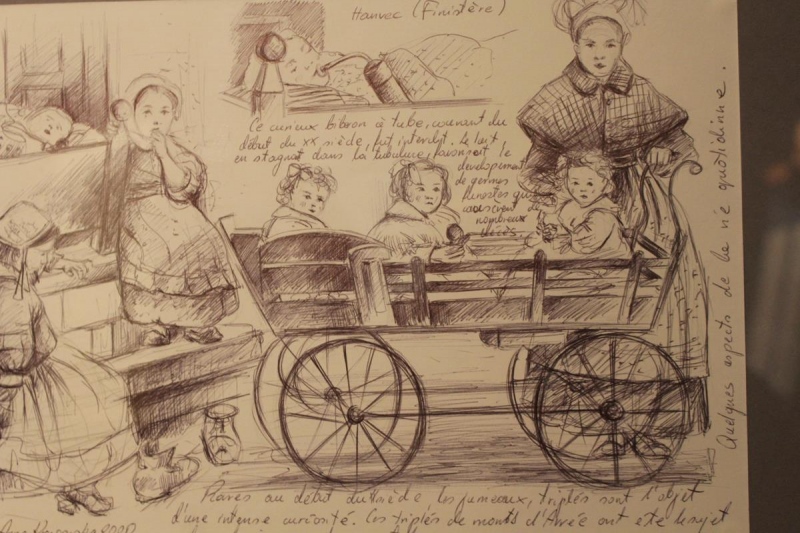 Hanvec (Finistère)
Ce curieux biberon à tube, courant du
début du XX siècle, fut interdit. Le lait
en stagnant dans la tubulure, favorisait le
développement
de germes
funestes qui
de
nombreux
décès.
Quelques aspects de la vie quotidienne.
Rares au début du siècle les jumeaux, triplés sont l'objet
d'une intense curiosité. Les triplés de monts d'Arrée ont été le sujet
2020